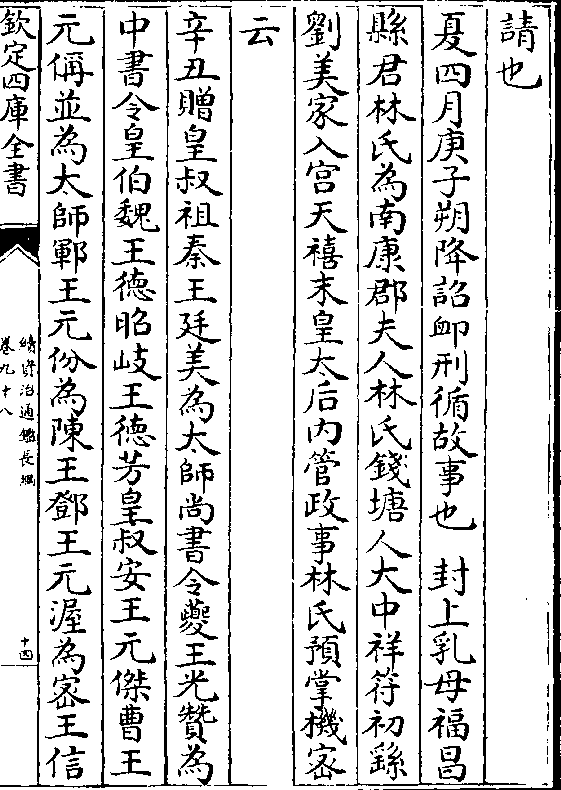 請也
夏四月庚子朔降詔䘏刑循故事也　封上乳母福昌
縣君林氏為南康郡夫人林氏錢塘人大中祥符初繇
劉美家入宫天禧末皇太后内管政事林氏預掌機宻
云
辛丑贈皇叔祖秦王廷美為太師尚書令夔王光贊為
中書令皇伯魏王德昭岐王德芳皇叔安王元傑曹王
元偁並為太師鄆王元份為陳王鄧王元偓為宻王信
欽定四庫全書
續資治通鑑長編
卷九十八
十四